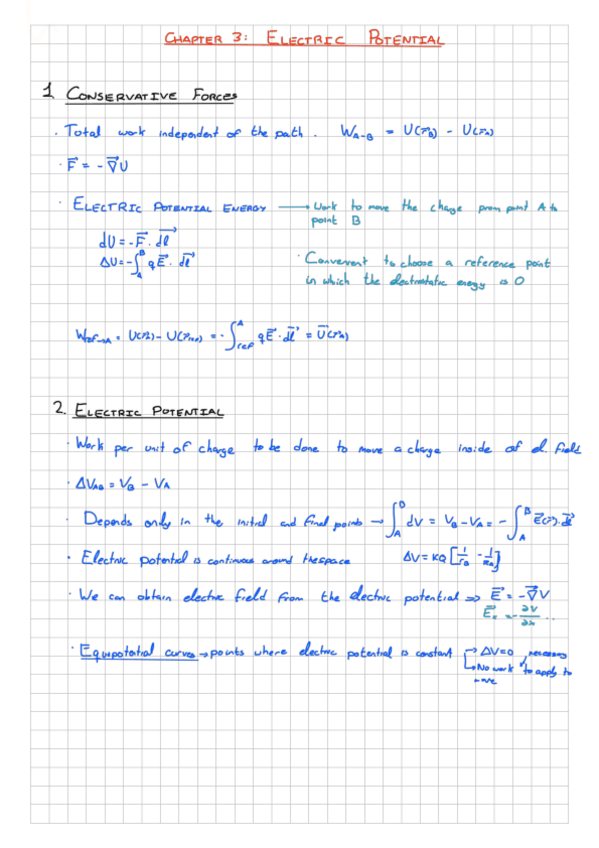 CHAPTER 3: ELECTRIC POTENTIAL
1 CONSERVATIVE FORCES
· Total work independent of the path. W_A-B = U(r_B) - U(r_A)
· F⃗ = - ∇⃗U
· ELECTRIC POTENTIAL ENERGY → Work to move the charge from point A to
point B
dU = - F⃗ · dl⃗
ΔU = - ∫_A^B qE⃗ · dl⃗
· Convenient to choose a reference point
in which the electrostatic energy is 0
W_ref→A = U(r_A) - U(r_ref) = - ∫_ref^A qE⃗ · dl⃗ = U(r_A)
2. ELECTRIC POTENTIAL
· Work per unit of charge to be done to move a charge inside of el. field
· ΔV_AB = V_B - V_A
· Depends only in the initial and final points → ∫_A^B dV = V_B - V_A = - ∫_A^B E⃗(r⃗) · dl⃗
· Electric potential is continuous around the space ΔV = KQ [1/r_B - 1/r_A]
· We can obtain electric field from the electric potential ⇒ E⃗ = - ∇⃗V
E⃗_x = - ∂V/∂x ...
· Equipotential curves → points where electric potential is constant → ΔV=0 necessary
→ No work to apply to
move